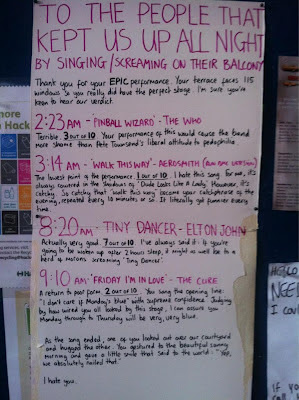 TO THE PEOPLE THAT
KEPT US UP ALL NIGHT
BY SINGING/SCREAMING ON THEIR BALCONY
Thank you for your EPIC performance. Your terrace faces 115
windows so you really did have the perfect stage. I'm sure you're
keen to hear our verdict.
2:23 AM - 'PINBALL WIZARD' - THE WHO
Terrible. 3 out of 10. Your performance of this would cause the band
more shame than Pete Townsend's liberal attitude to pedophilia
3:14 AM - 'WALK THIS WAY' - AEROSMITH (RUN DMC VERSION)
The lowest point of the performance. 1 out of 10. I hate this song. For me, it's
always covered in the shadows of 'Dude Looks Like a Lady'. However, it's
catchy. So catchy that 'walk this way' became your catchphrase of the
evening, repeated every 10 minutes or so. It literally got funnier every
time.
8:20 AM - TINY DANCER - ELTON JOHN
Actually very good. 7 out of 10. I've always said it: if you're
going to be woken up after 2 hours sleep, it might as well be to a
herd of morons screaming 'Tiny Dancer'.
9:10 AM 'FRIDAY I'M IN LOVE' - THE CURE
A return to poor form. 2 out of 10. You sang the opening line:
"I don't care if Monday's blue" with supreme confidence. Judging
by how wired you all looked by this stage, I can assure you
Monday through to Thursday will be very, very blue.
As the song ended, one of you looked out over our courtyard
and hugged the other. You gestured to the beautiful sunny
morning and gave a little smile that said to the world: "Yes,
we absolutely nailed that."
I hate you.
more
n Hack
HELLO,
NEE
I COUL
IF YO